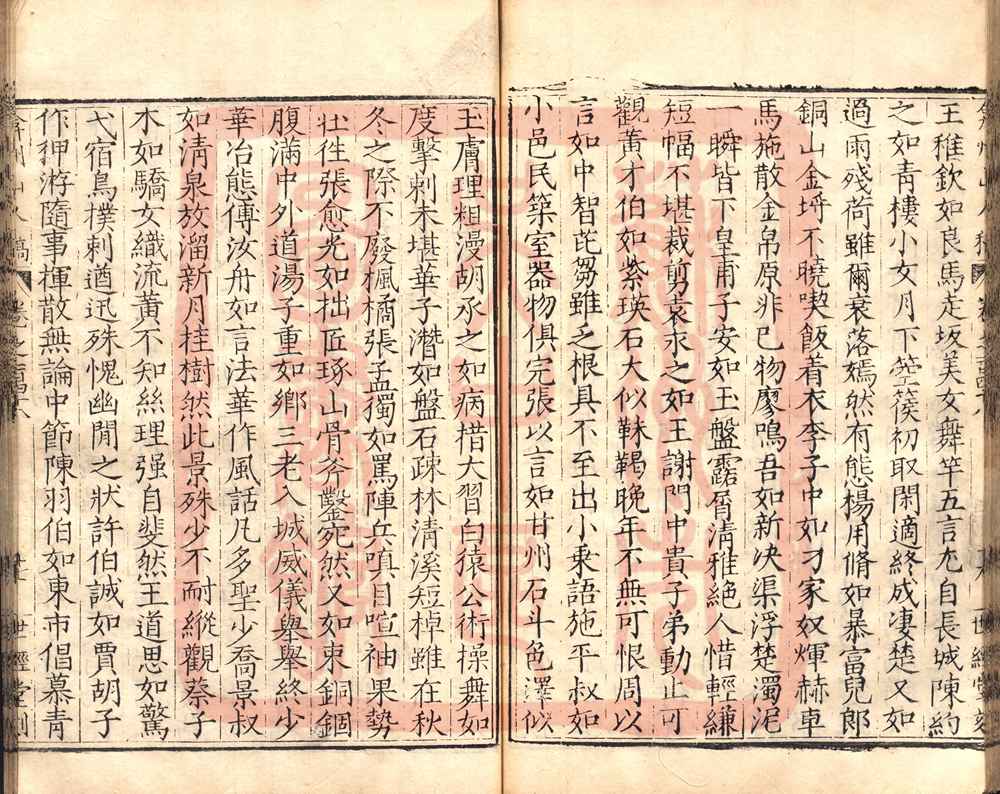 王稚欽如良馬走坂美女舞竿五言尤自長城陳約
之如青樓小女月下箜篌初取閑適終成凄楚又如
過雨殘荷雖爾衰落嫣然有態楊用脩如暴富兒郎
銅山金埒不曉喫飯着衣李子中如刁家奴煇赫車
馬施散金帛原非已物廖鳴吾如新决渠浮楚濁泥
一瞬皆下皇甫子安如玉盤露屑清雅絕人惜輕縑
短幅不堪裁剪袁永之如王謝門中貴子弟動止可
觀黃才伯如紫瑛石大似靺鞨晚年不無可恨周以
言如中智芘芻雖乏根具不至出小乘語施平叔如
小邑民築室器物俱完張以言如甘州石斗色澤似
玉膚理粗漫胡承之如病措大習白猿公術操舞如
度擊刺未堪華子潛如盤石疎林清溪短棹雖在秋
冬之際不廢楓橘張孟獨如罵陣兵嗔目喧袖果勢
壮徃張愈光如拙匠琢山骨斧鑿宛然又如束銅錮
腹滿中外道湯子重如鄉三老入城威儀舉舉終少
華冶態傅汝舟如言法華作風話凡多聖少喬景叔
如清泉放溜新月桂樹然此景殊少不耐縱觀蔡子
木如驕女織流黃不知絲理强自斐然王道思如驚
弋宿鳥樸刺遒迅殊愧幽閒之狀許伯誠如賈胡子
作狎游隨事揮散無論中節陳羽伯如東市倡慕青